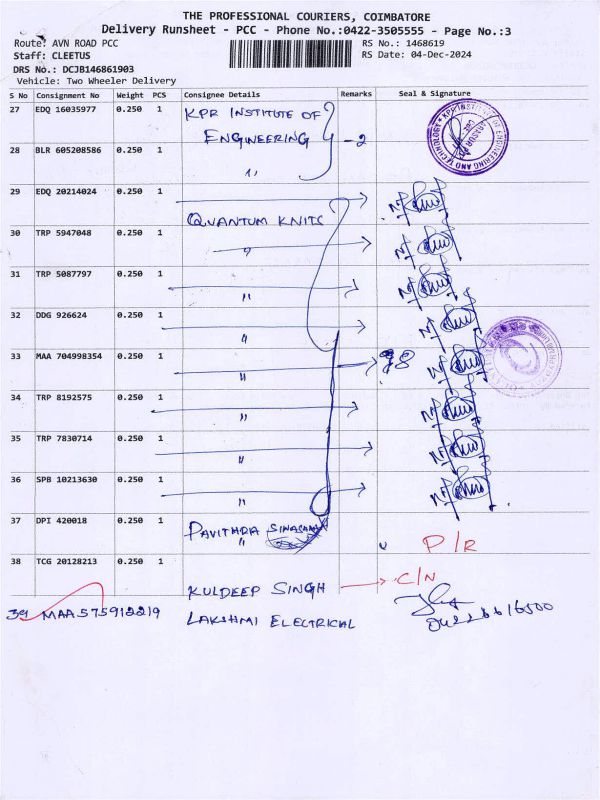 THE PROFESSIONAL COURIERS, COIMBATORE
Delivery Runsheet - PCC - Phone No.:0422-3505555 - Page No.:3
Route: AVN ROAD PCC RS No.: 1468619
Staff: CLEETUS RS Date: 04-Dec-2024
DRS No.: DCJB146861903
Vehicle: Two Wheeler Delivery
S No Consignment No Weight PCS Consignee Details Remarks Seal & Signature
27 EDQ 16035977 0.250 1 KPR INSTITUTE OF
ENGINEERING - 2
28 BLR 605208586 0.250 1
"
29 EDQ 20214024 0.250 1
QUANTUM KNITS
30 TRP 5947048 0.250 1
"
31 TRP 5087797 0.250 1
"
32 DDG 926624 0.250 1
"
33 MAA 704998354 0.250 1
"
34 TRP 8192575 0.250 1
"
35 TRP 7830714 0.250 1
"
36 SPB 10213630 0.250 1
"
37 DPI 420018 0.250 1
PAVITHRA P/R
38 TCG 20128213 0.250 1
KULDEEP SINGH C/N
39 MAA 575912219 LAKSHMI ELECTRICAL